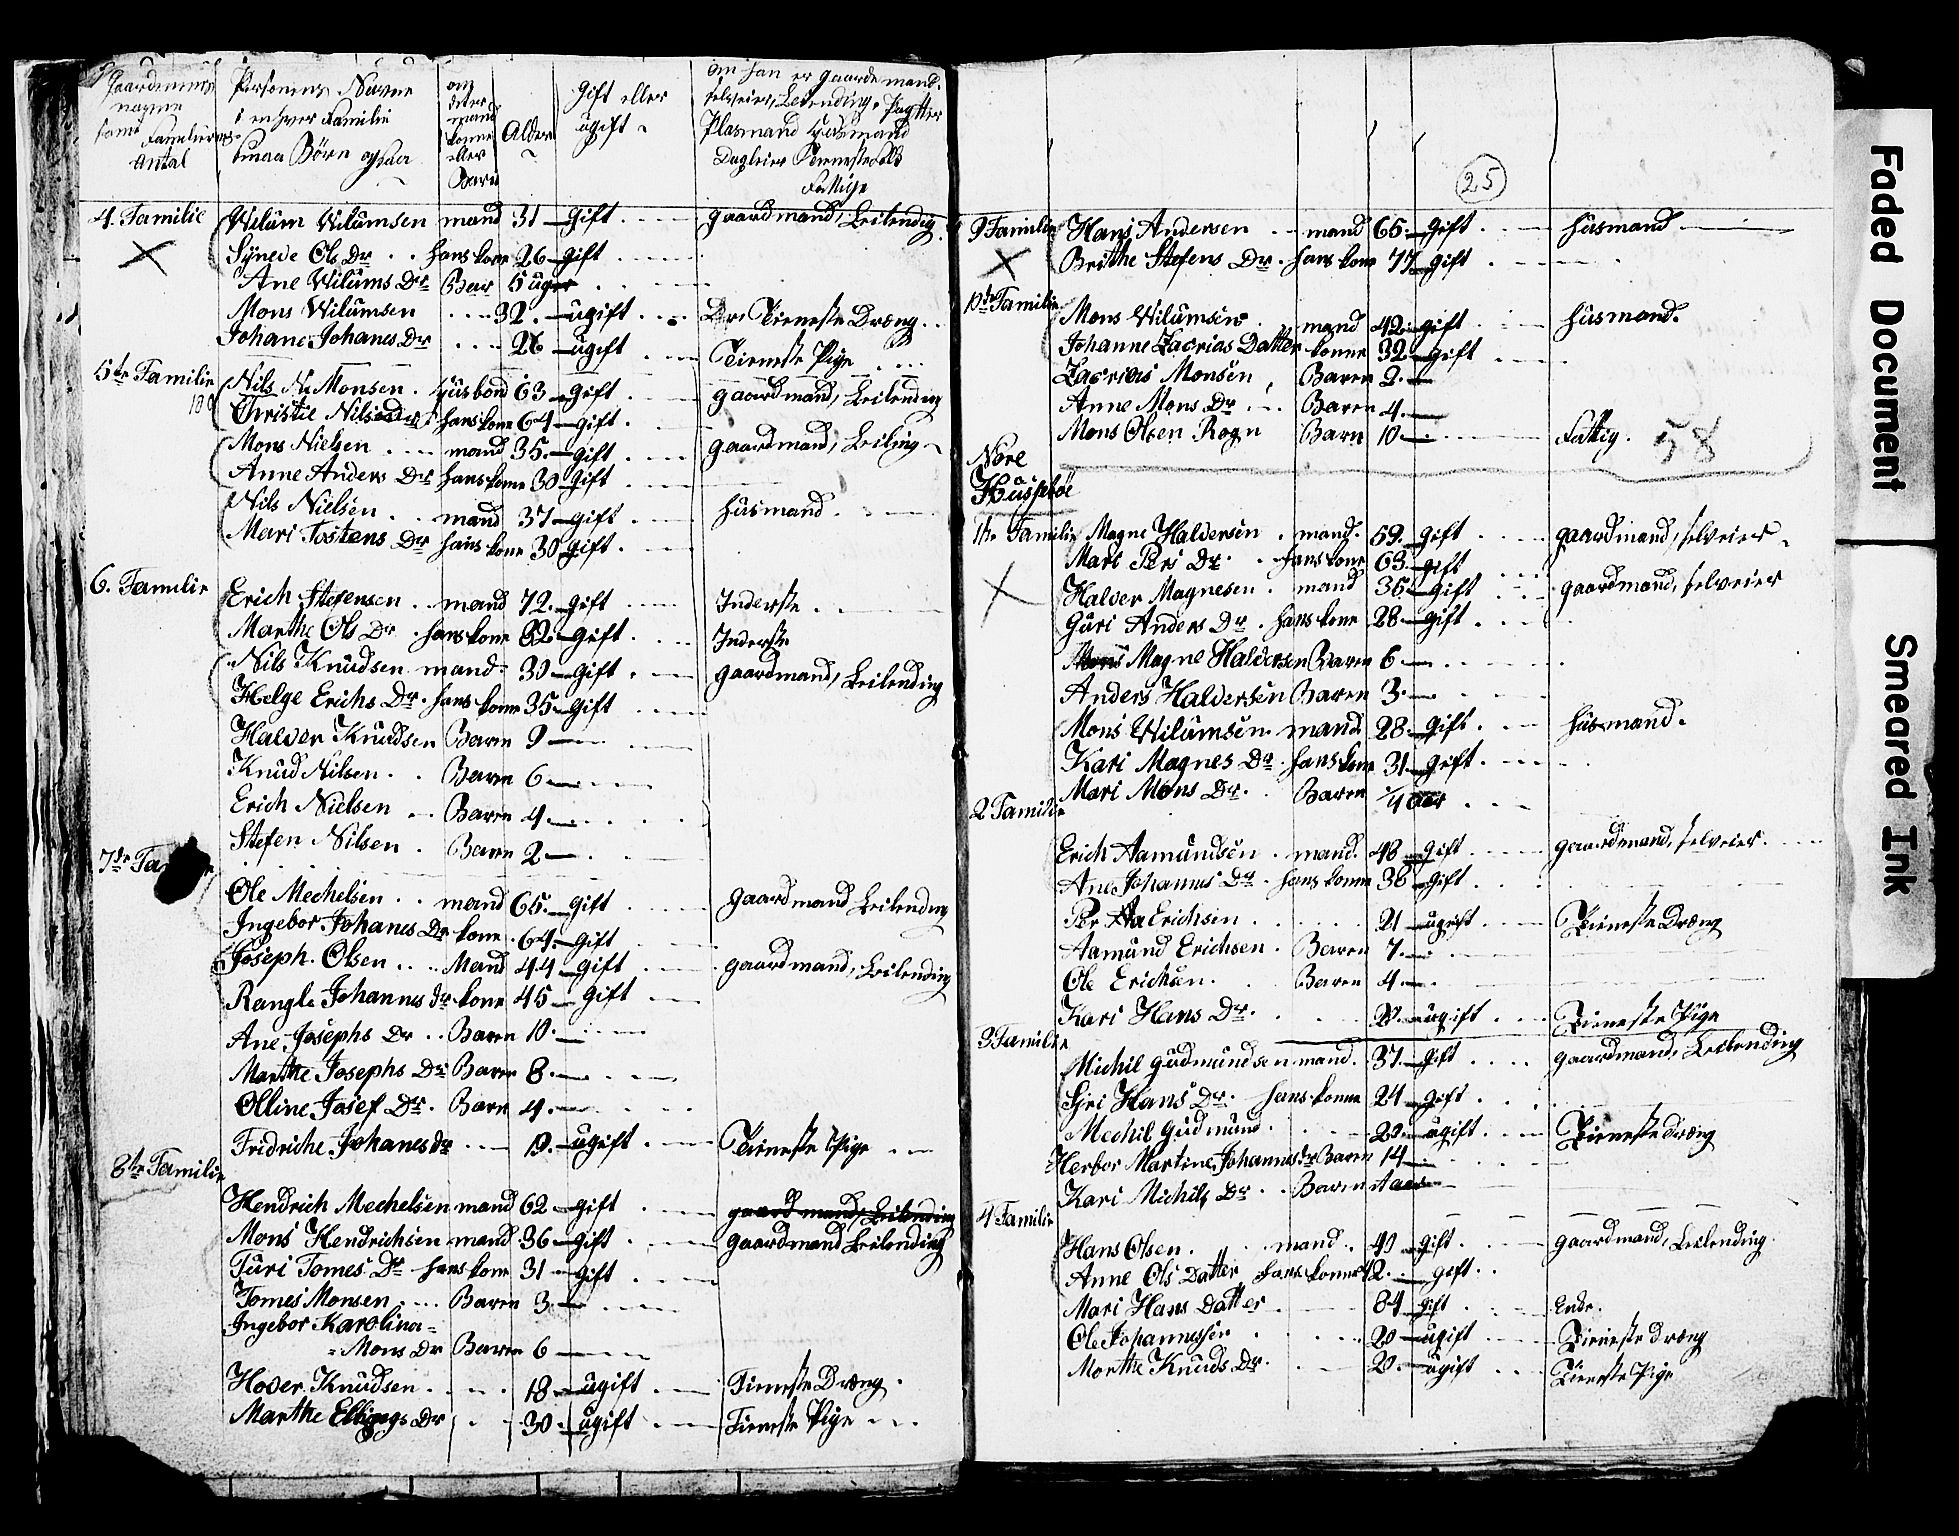 Gaardenens Personens Navne om Alder Gift eller om han er gaardemand,
nafvne i enhver Familie deter ugift selveier, Leilending, Pagtter
samt Familiernes smaa Børn ogsaa mand Plasmand Husmand
Antal konne eller Barn Dagleier Tienestefolk
Fattige
4. Familie Wilum Wilumsen mand 31 gift gaardmand, Leilending
Synede Ols Dr hans kone 26 gift
Ane Wilums Dr Bar 5 uger
Mons Wilumsen 32 ugift Tieneste Dræng
Johane Johanes Dr 26 ugift Tieneste Pige
5te Familie Nils Monsen Husbond 63 gift gaardmand, Leilending
Christie Nilsdr hans kone 64 gift
Mons Nielsen mand 35 gift gaardmand, Leiling
Anne Anders Dr hans kone 30 gift
Nils Nielsen mand 37 gift husmand
Mari Tostens Dr hans kone 30 gift
6. Familie
Erich Stefensen mand 72 gift Inderste
Marthe Ols Dr hans kone 82 gift Inderste
Nils Knudsen mand 30 gift gaardmand, Leilending
Helge Erichs Dr hans kone 35 gift
Halver Knudsen Baren 9
Knud Nilsen Baren 6
Erich Nielsen Baren 4
Stefen Nilsen Baren 2
7de Fa
Ole Mechelsen mand 65 gift gaardmand Leilending
Ingebor Johanes Dr kone 64 gift
Joseph Olsen Mand 44 gift gaardmand, Leilending
Rangle Johannes dr kone 45 gift
Ane Josephs Dr Baren 10
Marthe Josephs Dr Baren 8
Olline Josef Dr Barn 4
Fridriche Johanes dr 19 ugift Tieneste Pige
8te Familie
Hendrich Mechelsen mand 62 gift gaardmand, Leilending
Mons Hendrichsen mand 36 gift gaardmand Leilending
Turi Tomes Dr hans kone 31 gift
Tomes Monsen Baren 3
Ingebor Karolina
Mons Dr Baren 6
Hover Knudsen 18 ugift Tieneste Dræng
Marthe Ellings Dr 30 ugift Tieneste Pige
25
9 Familie Hans Andersen mand 65 gift husmand
Brithe Stefens Dr hans kone 77 gift
10de Familie
Mons Wilumsen mand 42 gift husmand
Johanne Zacrias Datter konne 32 gift
Zacrias Monsen Baren 2
Anne Mons Dr Baren 4
Mons Olsen Rogn Barn 10 Fattig
58
Nore
Hussebøe
1te Familie Magne Haldersen mand 59 gift gaardmand, selveier
Mari Pers Dr hans kone 63 gift
Halver Magnesen mand 36 gift gaardmand, selveier
Guri Anders Dr hans kone 28 gift
Magne Haldersen Baren 6
Anders Haldersen Baren 3
Mons Wilumsen mand 28 gift husmand
Kari Magnes Dr hans kone 31 gift
Mari Mons Dr Baren 1/4 aar
2 Familie
Erich Aamundsen mand 48 gift gaardmand, selveier
Ane Johannes Dr hans konne 36 gift
Per Erichsen 21 ugift Tieneste Dræng
Aamund Erichsen Baren 7
Ole Erichsen Baren 4
Kari Hans Dr 20 ugift Tieneste Pige
3 Familie
Michil Gudmundsen mand 37 gift gaardmand, Leilending
Siri Hans Dr hans konne 24 gift
Mechil Gudmund 20 ugift Tieneste dræng
Herbor Martine Johannes dr Baren 14
Kari Michils Dr Baren aar
4 Familie
Hans Olsen mand 49 gift gaardmand, Leilending
Anne Ols Datter hans konne 42 gift
Mari Hans Datter 84 gift Enke
Ole Johannessen 20 ugift Tieneste dræng
Marthe Knuds Dr 20 ugift Tieneste Pige
Faded Document
Smeared Ink